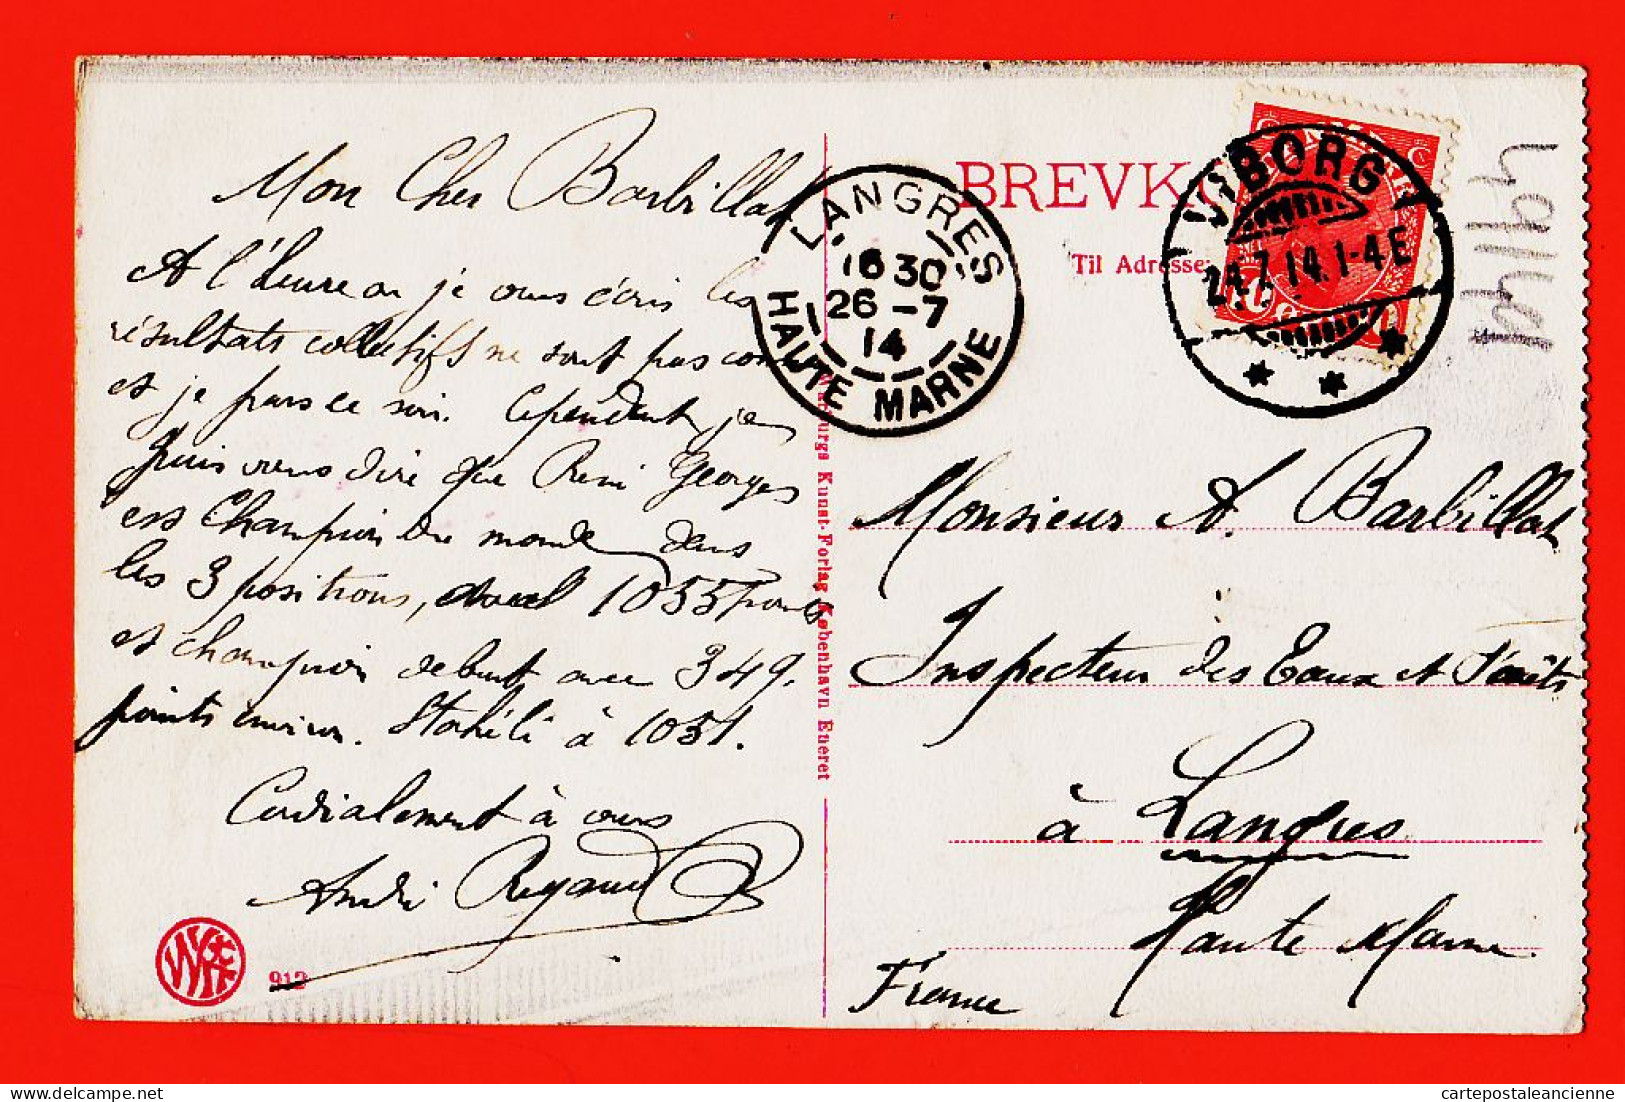 Mon Cher Barbillat
A l'heure où je vous écris les
résultats collectifs ne sont pas con
et je pars ce soir. Cependant je
puis vous dire que René Georges
est Champion du monde dans
les 3 positions, avec 1055 points
et champion debout avec 349.
points environ. Stahéli à 1031.
Cordialement à vous
André Regaud
912
Warburgs Kunst-Forlag København Eneret
LANGRES
16 30
26 - 7
14
HAUTE MARNE
BREVK
Til Adresse
VIBORG
24.7.14.1-4E
Monsieur A. Barbillat
Inspecteur des Eaux et Forêts
à Langres
Haute Marne
France
delcampe.net
cartepostaleancienne